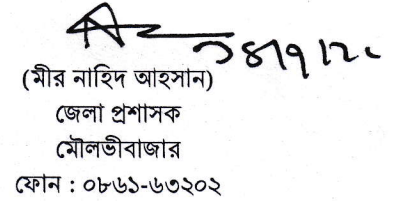 ১৪/৭/২০
(মীর নাহিদ আহসান)
জেলা প্রশাসক
মৌলভীবাজার
ফোন : ০৮৬১-৬৩২০২